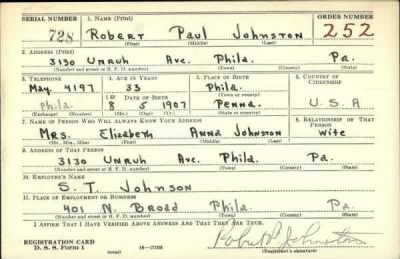 SERIAL NUMBER 1. NAME (Print) ORDER NUMBER
728 ROBERT PAUL JOHNSTON 252
(First) (Middle) (Last)
2. ADDRESS (Print)
3130 UNRUH AVE. PHILA. PA.
(Number and street or R. F. D. number) (Town) (County) (State)
3. TELEPHONE 4. AGE IN YEARS 5. PLACE OF BIRTH 6. COUNTRY OF CITIZENSHIP
MAY. 4197 33 PHILA.
DATE OF BIRTH (Town or county)
Phila 8 5 1907 PENNA. U. S. A
(Exchange) (Number) (Mo.) (Day) (Yr.) (State or country)
7. NAME OF PERSON WHO WILL ALWAYS KNOW YOUR ADDRESS 8. RELATIONSHIP OF THAT PERSON
MRS. ELIZABETH ANNA JOHNSTON WIFE
(Mr., Mrs., Miss) (First) (Middle) (Last)
9. ADDRESS OF THAT PERSON
3130 UNRUH AVE. PHILA. PA.
(Number and street or R. F. D. number) (Town) (County) (State)
10. EMPLOYER'S NAME
S. T. JOHNSON
11. PLACE OF EMPLOYMENT OR BUSINESS
401 N. BROAD PHILA. PA.
(Number and street or R. F. D. number) (Town) (County) (State)
I AFFIRM THAT I HAVE VERIFIED ABOVE ANSWERS AND THAT THEY ARE TRUE.
REGISTRATION CARD
D. S. S. Form 1 (over) 16—17105 Robert P. Johnston
(Registrant's signature)